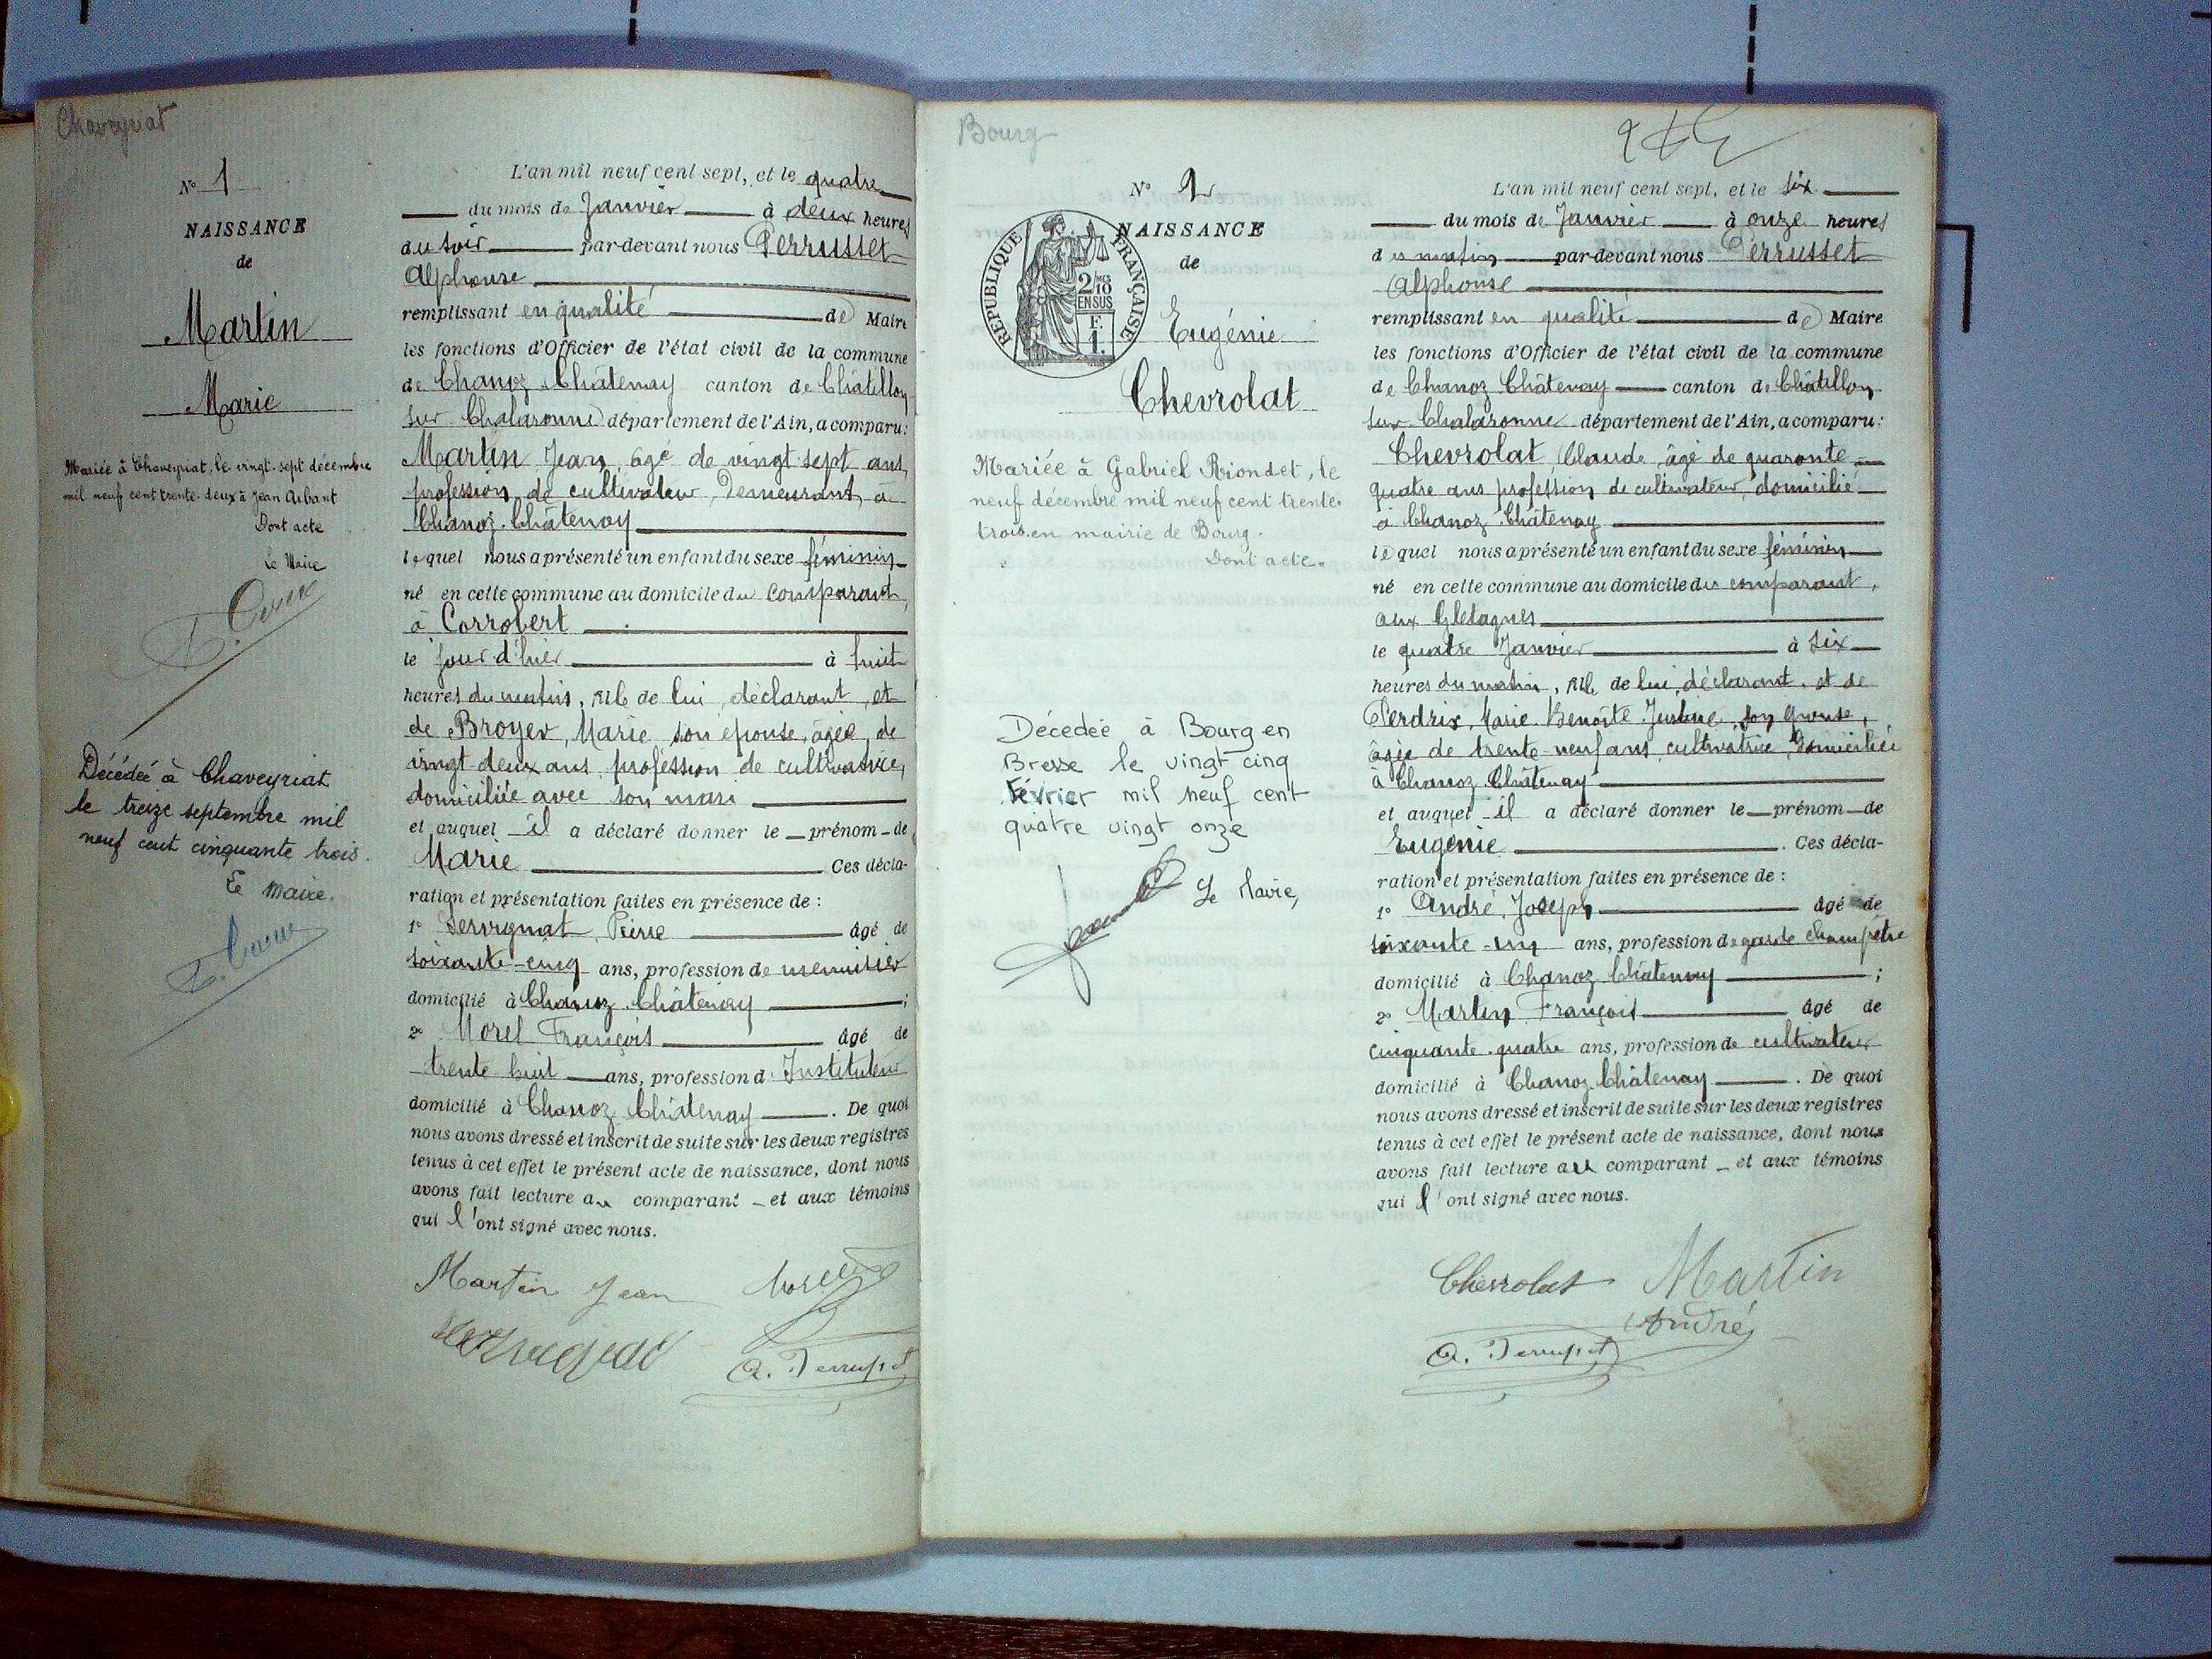 Chaveyriat
N° 1
NAISSANCE
de
Martin
Marie
Mariée à Chaveyriat, le vingt-sept décembre
mil neuf cent trente-deux à Jean Arbant
Dont acte
Le Maire
Décédée à Chaveyriat
le treize septembre mil
neuf cent cinquante trois.
Le maire.
L'an mil neuf cent sept, et le quatre
du mois de Janvier à deux heures
du soir par-devant nous Perrusset
Alphonse
remplissant en qualité de Maire
les fonctions d'Officier de l'état civil de la commune
de Chanoz Châtenay canton de Châtillon
sur Chalaronne département de l'Ain, a comparu:
Martin Jean, âgé de vingt-sept ans,
profession de cultivateur, demeurant à
Chanoz-Châtenay
lequel nous a présenté un enfant du sexe féminin
né en cette commune au domicile du comparant,
à Corrobert
le jour d'hier à huit
heures du matin, fils de lui déclarant et
de Broyer, Marie son épouse, âgée de
vingt deux ans, profession de cultivatrice,
domiciliée avec son mari
et auquel il a déclaré donner le prénom de
Marie Ces décla-
ration et présentation faites en présence de :
1° Servignat, Pierre âgé de
soixante-cinq ans, profession de menuisier
domicilié à Chanoz-Châtenay ;
2° Morel François âgé de
trente huit ans, profession d' Instituteur
domicilié à Chanoz Châtenay . De quoi
nous avons dressé et inscrit de suite sur les deux registres
tenus à cet effet le présent acte de naissance, dont nous
avons fait lecture au comparant et aux témoins
qui l'ont signé avec nous.
Martin Jean Morel
Servignat
A. Perrusset
Bourg
N° 2
NAISSANCE
de
RÉPUBLIQUE FRANÇAISE
2/10
EN SUS
F.
1.
Eugénie
Chevrolat
Mariée à Gabriel Riondet, le
neuf décembre mil neuf cent trente-
trois en mairie de Bourg.
Dont acte.
Décédée à Bourg en
Bresse le vingt cinq
Février mil neuf cent
quatre vingt onze
Le Maire,
L'an mil neuf cent sept, et le six
du mois de Janvier à onze heures
du matin par-devant nous Perrusset
Alphonse
remplissant en qualité de Maire
les fonctions d'Officier de l'état civil de la commune
de Chanoz Châtenay canton de Châtillon
sur Chalaronne département de l'Ain, a comparu:
Chevrolat Claude, âgé de quarante-
quatre ans profession de cultivateur, domicilié
à Chanoz Châtenay
lequel nous a présenté un enfant du sexe féminin
né en cette commune au domicile du comparant,
aux Gletagnes
le quatre Janvier à six
heures du matin, fils de lui, déclarant, et de
Perdrix, Marie Benoîte Justine, son épouse,
âgée de trente-neuf ans, cultivatrice, domiciliée
à Chanoz Châtenay
et auquel il a déclaré donner le prénom de
Eugénie . Ces décla-
ration et présentation faites en présence de :
1° André, Joseph âgé de
soixante-un ans, profession de garde champêtre
domicilié à Chanoz Châtenay ;
2° Martin François âgé de
cinquante-quatre ans, profession de cultivateur
domicilié à Chanoz-Châtenay . De quoi
nous avons dressé et inscrit de suite sur les deux registres
tenus à cet effet le présent acte de naissance, dont nous
avons fait lecture au comparant et aux témoins
qui l'ont signé avec nous.
Chevrolat Martin
André
A. Perrusset